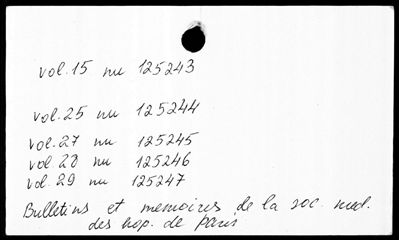 vol. 15 nu 125243
vol. 25 nu 125244
vol. 27 nu 125245
vol. 28 nu 125246
vol. 29 nu 125247
Bulletins et memoires de la soc. med.
des hop. de Paris